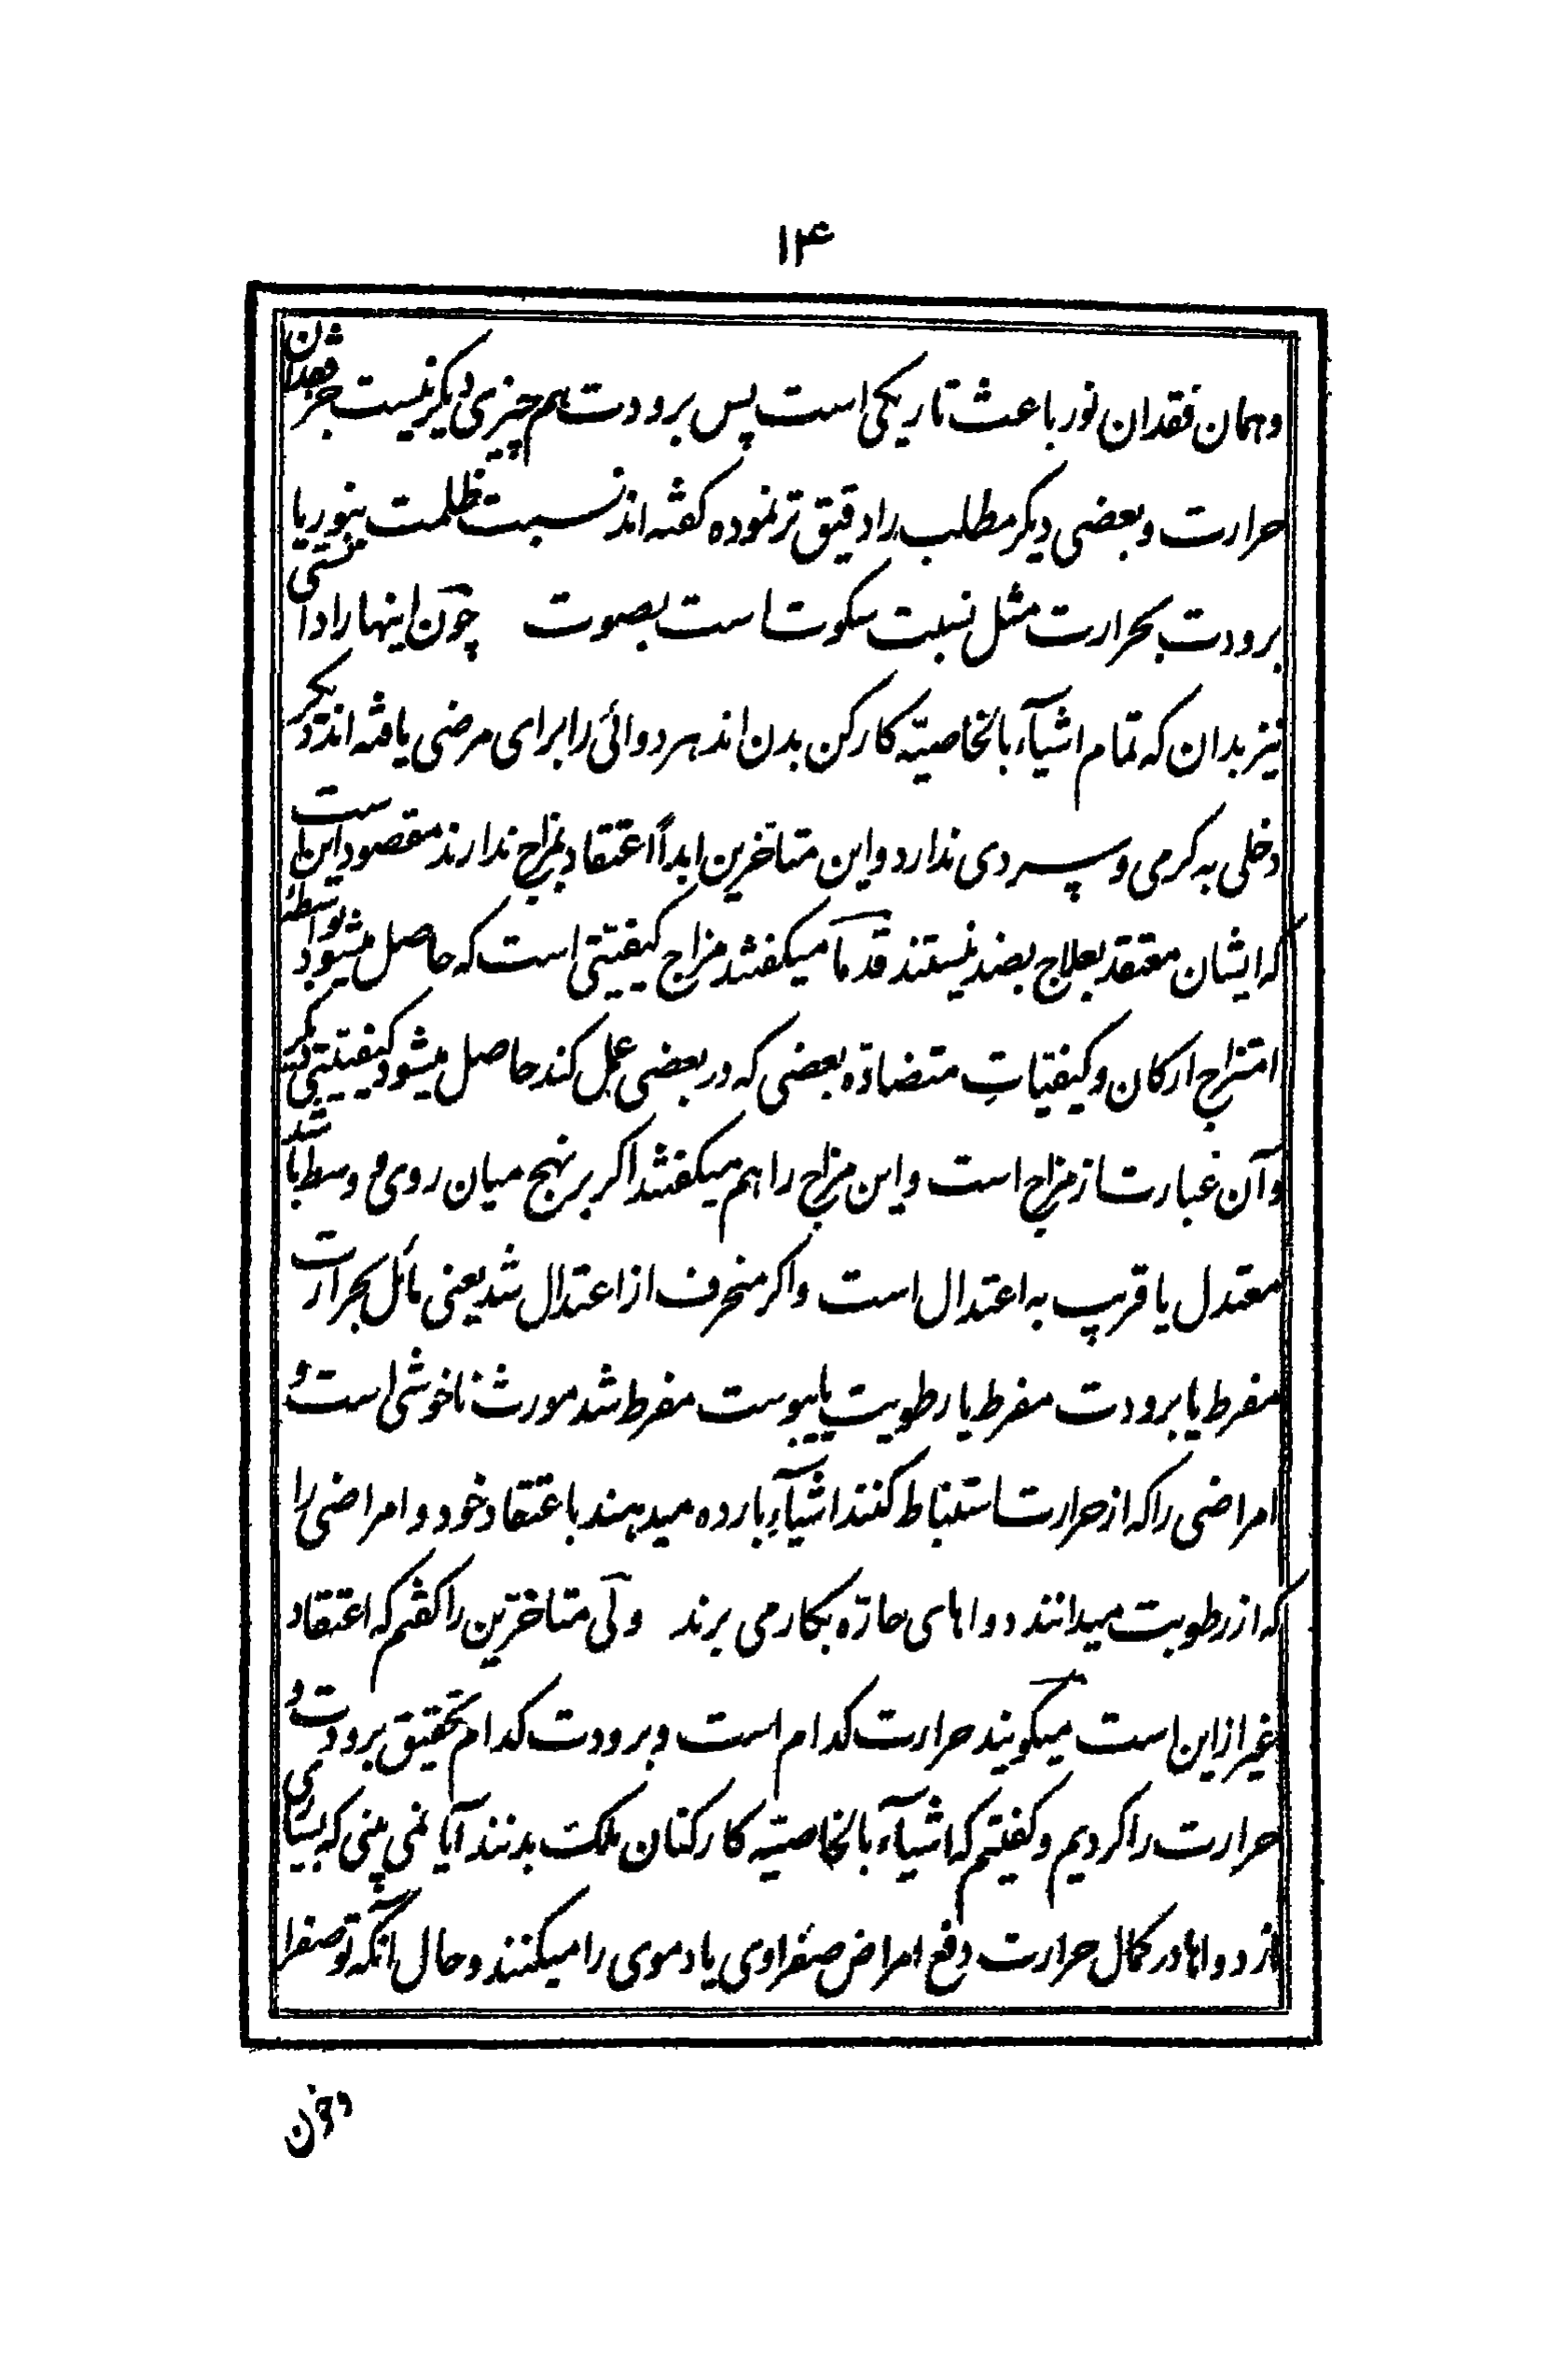 ۱۴
وهمان فقدان نور باعث تاریکی است پس برودت هم چیزی دیگر نیست جز فقدان
حرارت و بعضی دیکر مطلب را دقیق تر نموده کفته اند نسبت ظلمت بنور یا
برودت بحرارت مثل نسبت سکوت است بصوت چون اینها را دانستی
نیز بدان که تمام اشیآء بالخاصیّه کارکن بدن اند هر دوائی را برای مرضی یافته اند دیکر
دخلی به کرمی و سردی ندارد و این متاخّرین ابداً اعتقاد بمزاج ندارند مقصود این است
که ایشان معتقد بعلاج بضد نیستند قدمآ میکفتند مزاج کیفیّتی است که حاصل میشود بواسطهٔ
امتزاج ارکان و کیفیّاتِ متضادّه بعضی که در بعضی عمل کند حاصل میشود کیفیّتی دیکر
و آن عبارت از مزاج است و این مزاج را هم میکفتند اکر بر نهج میان روی و وسط باشد
معتدل یا قریب به اعتدال است و اکر منحرف از اعتدال شد یعنی مائل بحرارت
مفرط یا برودت مفرط یا رطوبت یا یبوست مفرط شد مورث ناخوشی است و
امراضی را که از حرارت استنباط کنند اشیآءِ بارده میدهند باعتقاد خود و امراضی را
که از رطوبت میدانند دواهای حارّه بکار می برند ولی متاخرّین را کفتم که اعتقاد
غیر از این است میگویند حرارت کدام است و برودت کدام تحقیق برودت و
حرارت را کردیم و کفتیم که اشیآء بالخاصیّه کارکنان ملکت بدنند آیا نمی بینی که بسیاری
از دواها در کمال حرارت دفع امراض صفراوی یا دموی را میکنند و حال آنکه تو صفرا
و خون